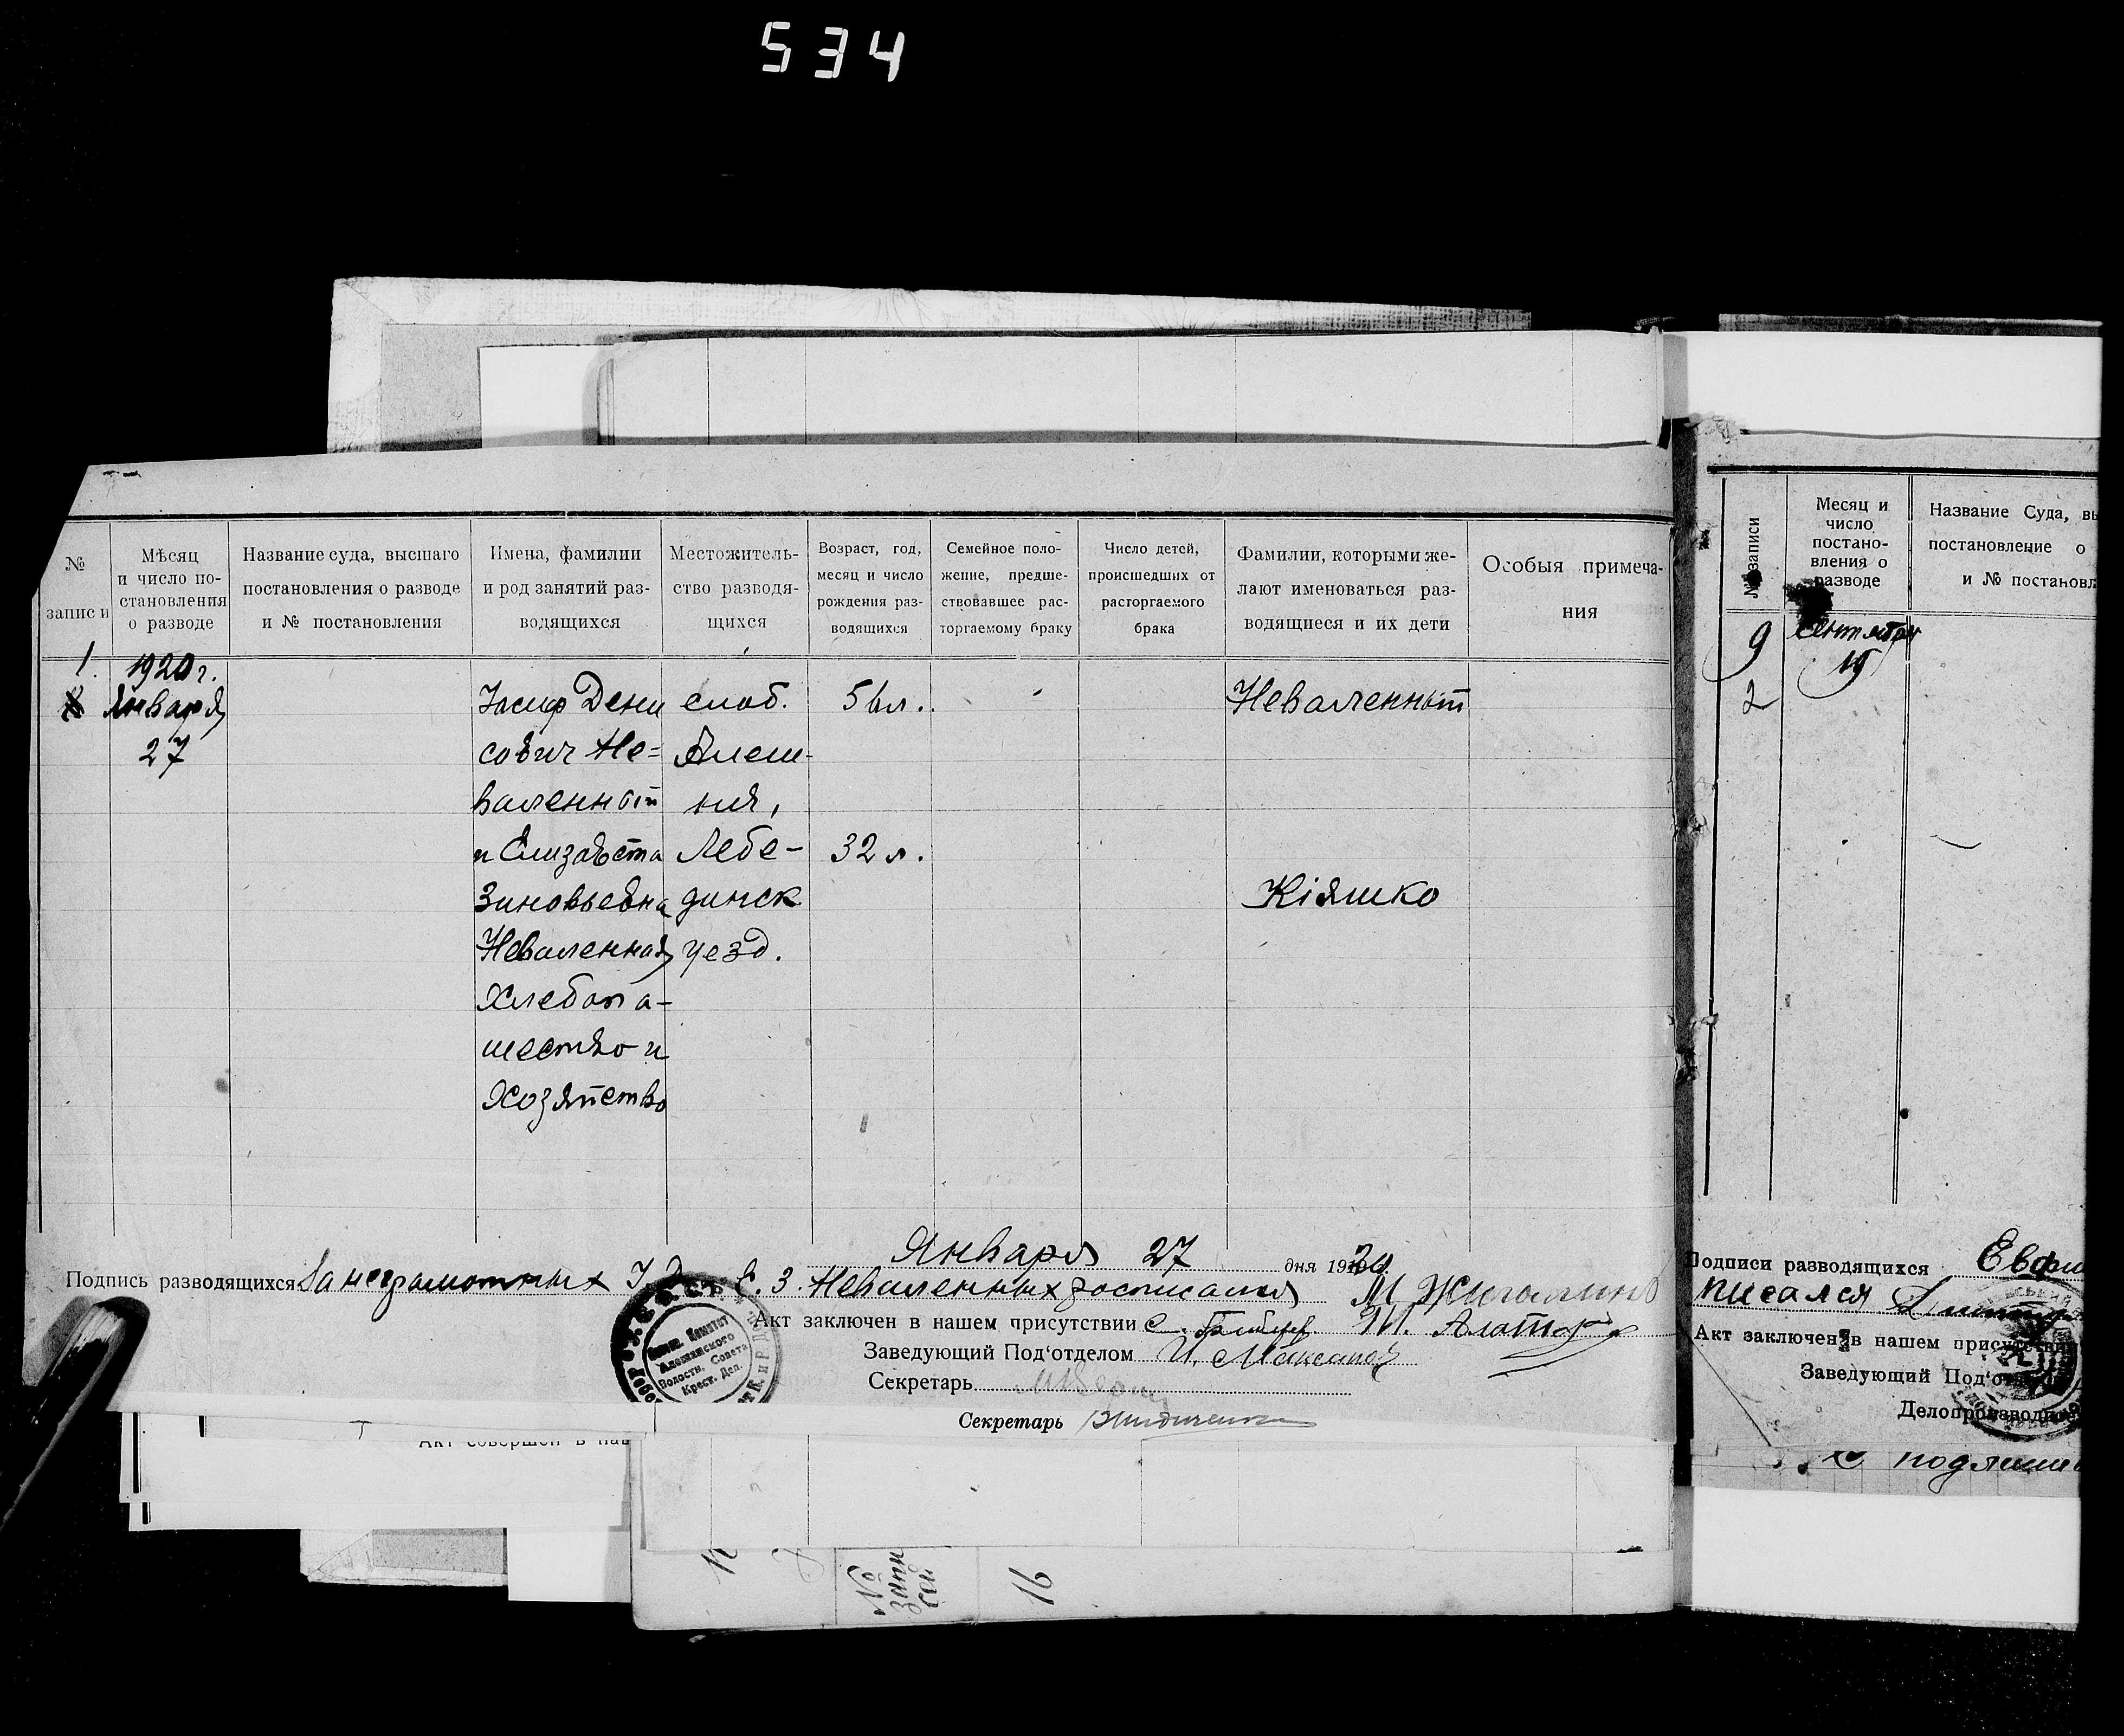 534
№
записи
Мѣсяц
и число по-
становления
о разводе
Название суда, высшаго
постановления о разводе
и № постановления
Имена, фамилии
и род занятий раз-
водящихся
Местожитель-
ство разводя-
щихся
Возраст, год,
месяц и число
рождения раз-
водящихся
Семейное поло-
жение, предше-
ствовавшее рас-
торгаемому браку
Число детей,
происшедших от
расторгаемого
брака
Фамилии, которыми же-
лают именоваться раз-
водящиеся и их дети
Особыя примеча-
ния
1. 1920 г.
Января
27
Иосиф Дени
сович Не=
валенный
и Елизавета
Зиновьевна
Неваленная
Хлебопа-
шество и
Хозяйство
слоб.
Алеш-
ня,
Лебе-
динск
уезд.
56 л.
32 л.
Неваленный
Кіяшко
Января 27 дня 19
Подпись разводящихся За неграмотных І. Д. Е. З. Неваленных росписался М Жигалинъ
Акт заключен в нашем присутствии
Заведующий Под'отделом И.
Секретарь
Секретарь
Волостн. Совета
Крест. Деп.
Акт совершен в наш
№
запи
сей
16
№ записи
Месяц и
число
постано-
вления о
разводе
Название Суда, вы
постановление о
и № постановл
9
2
Сентября
19
Подписи разводящихся Евфи
писался
Акт заключен в нашем присутствии
Заведующий Под'от
Делопроизводите